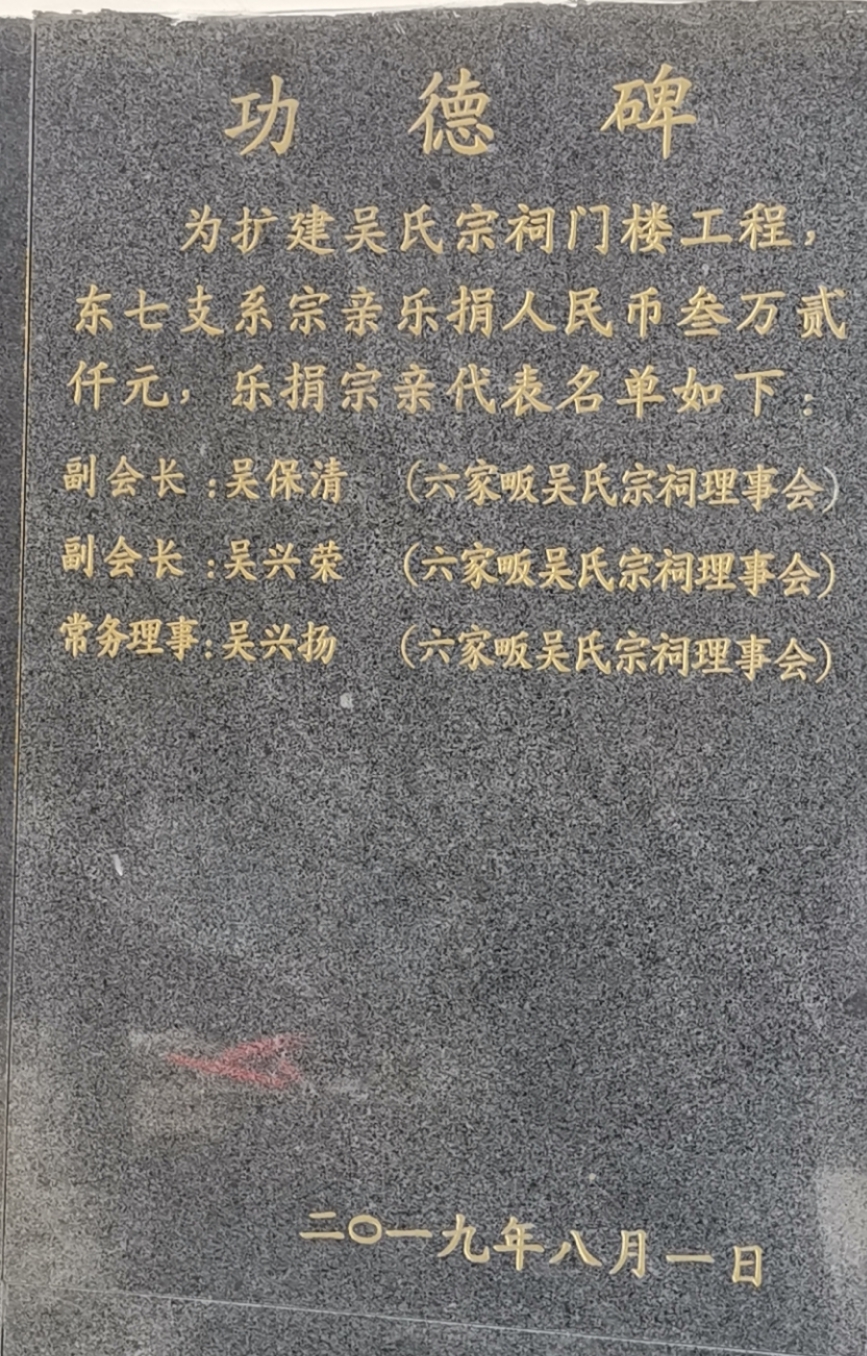 功德碑
为扩建吴氏宗祠门楼工程，
东七支系宗亲乐捐人民币叁万贰
仟元，乐捐宗亲代表名单如下：
副会长：吴保清 （六家畈吴氏宗祠理事会）
副会长：吴兴荣 （六家畈吴氏宗祠理事会）
常务理事：吴兴扬 （六家畈吴氏宗祠理事会）
二〇一九年八月一日